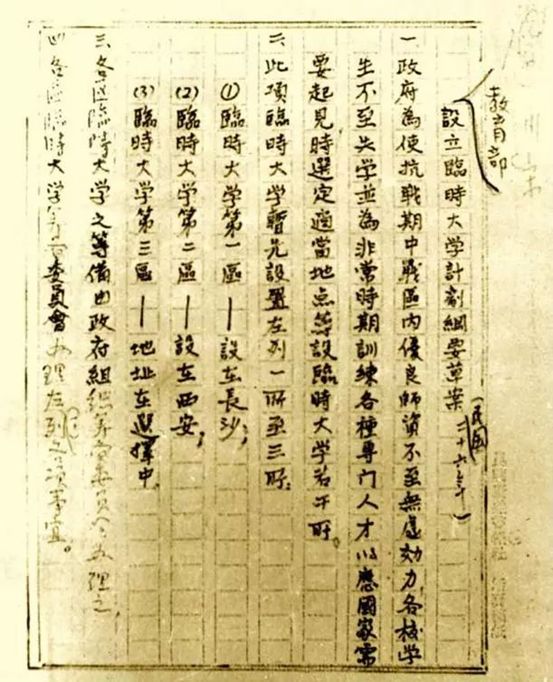 教育部
設立臨時大学計劃綱要草案（民国二十六年）
一 政府為使抗戰期中戰區內優良師資不至無處効力，各校学
生不至失学並為非常時期訓練各種專门人才以應國家需
要起見特選定適當地点筹設臨時大学若干所。
二 此項臨時大学暫先設置左列一所至三所：
(1) 臨時大学第一區——設在長沙；
(2) 臨時大学第二區——設在西安；
(3) 臨時大学第三區——地址在選擇中。
三、各區臨時大学之筹備由政府組織筹备委員会办理之，
四 各區臨時大学筹备委員會办理左列之各項事宜。